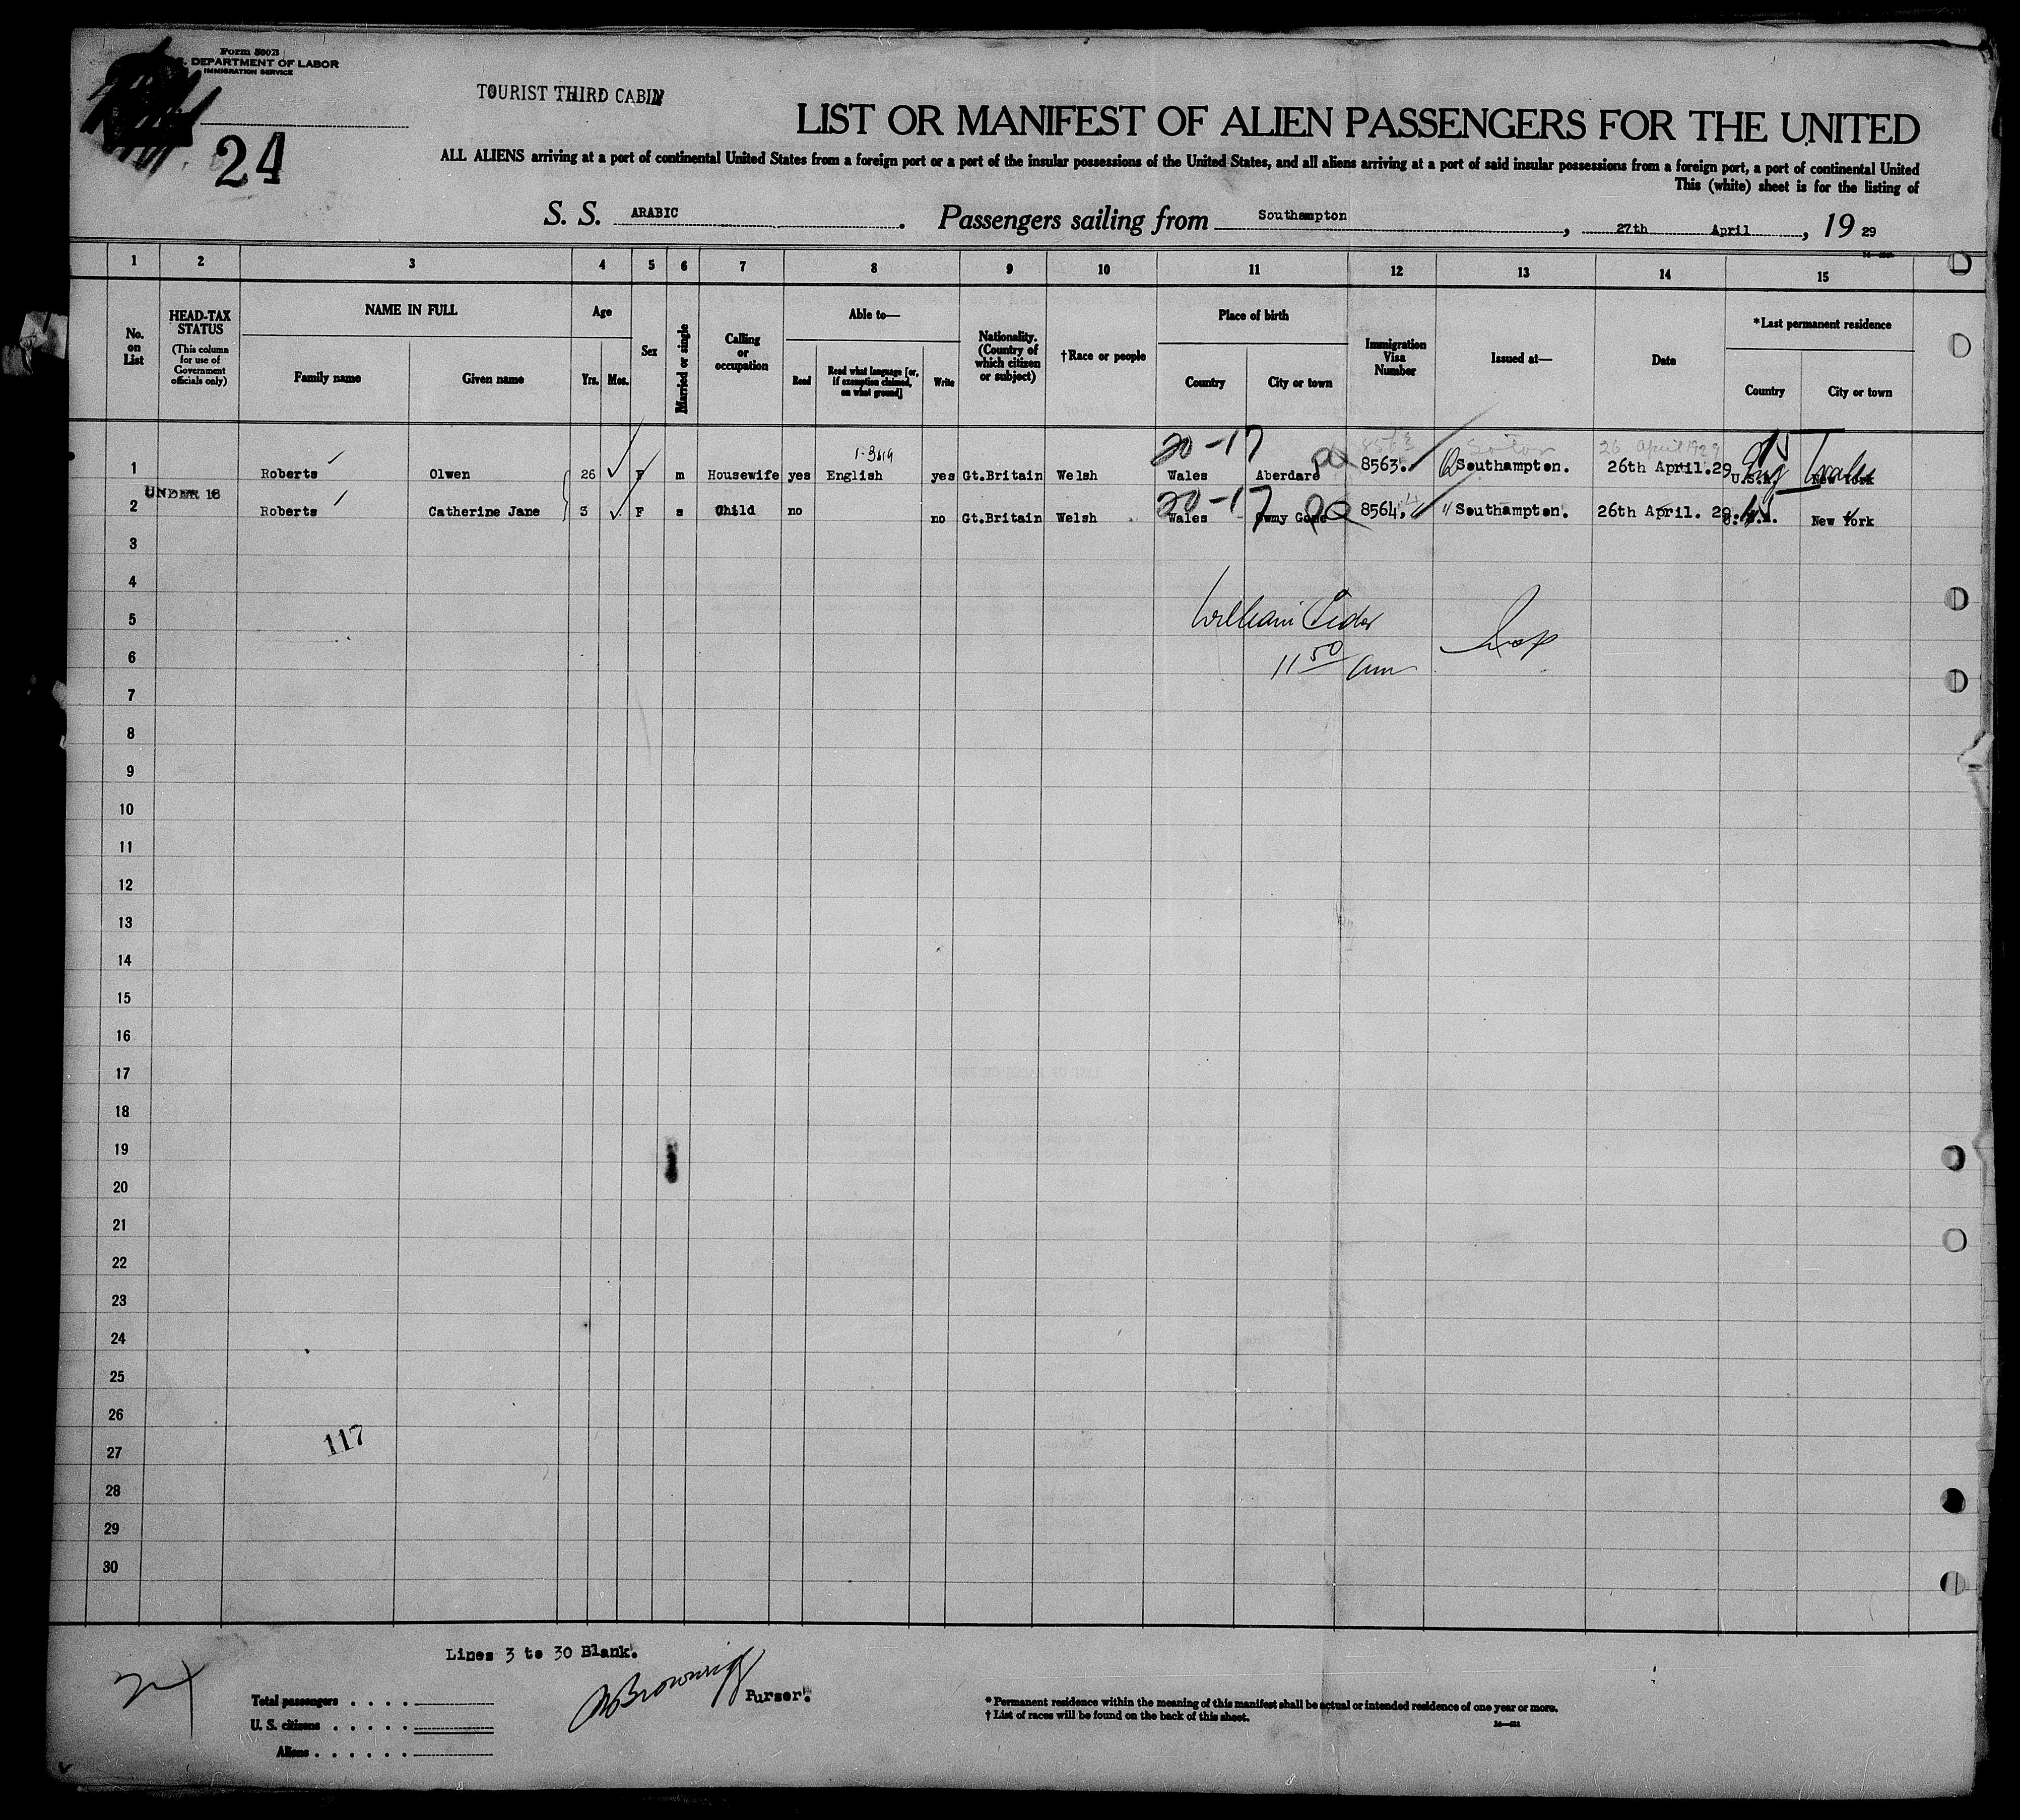 Form 500B
DEPARTMENT OF LABOR
IMMIGRATION SERVICE
TOURIST THIRD CABIN
24
LIST OR MANIFEST OF ALIEN PASSENGERS FOR THE UNITED
ALL ALIENS arriving at a port of continental United States from a foreign port or a port of the insular possessions of the United States, and all aliens arriving at a port of said insular possessions from a foreign port, a port of continental United
This (white) sheet is for the listing of
S. S. ARABIC. Passengers sailing from Southampton, 27th April, 19 29
1 2 3 4 5 6 7 8 9 10 11 12 13 14 15
No. on List
HEAD-TAX STATUS
(This column for use of Government officials only)
NAME IN FULL
Family name
Given name
Age
Yrs. Mos.
Sex
Married or single
Calling or occupation
Able to—
Read
Read what language [or, if exemption claimed, on what ground]
Write
Nationality. (Country of which citizen or subject)
†Race or people
Place of birth
Country
City or town
Immigration Visa Number
Issued at—
Date
*Last permanent residence
Country
City or town
20-17
1 Roberts Olwen 26 F m Housewife yes English yes Gt.Britain Welsh Wales Aberdare 8563. Southampton. 26th April.29 U.S.A. New York
Eng Wales
UNDER 16
20-17
2 Roberts Catherine Jane 3 F s Child no no Gt.Britain Welsh Wales 8564. Southampton. 26th April. 29 New York
3
4
5
William
6
11 50 am
7
8
9
10
11
12
13
14
15
16
17
18
19
20
21
22
23
24
25
26
27
117
28
29
30
Lines 3 to 30 Blank.
24
Total passengers
U. S. citizens
Aliens
Purser.
* Permanent residence within the meaning of this manifest shall be actual or intended residence of one year or more.
† List of races will be found on the back of this sheet.